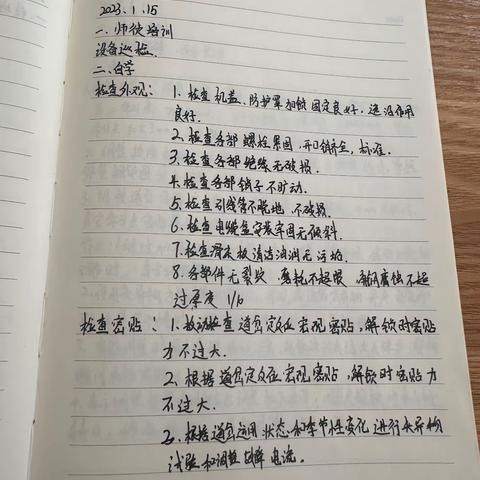 2023.1.15
一.师徒培训
设备巡检.
二.自学
检查外观: 1.检查机盖、防护罩 固定良好,遮 作用
良好.
2.检查各部螺栓紧固,开口销齐全,标准.
3.检查各部绝缘无破损.
4.检查各部销子不旷动.
5.检查引线管不脱地,不破损.
6.检查电缆盒安装牢固无倾斜.
7.检查滑床板清洁油润无污垢.
8.各部件无裂纹,磨耗不超限, 腐蚀不超
过厚度1/10
检查密贴: 1.扳动检查道岔定反位宏观密贴,解锁时密贴
力不过大.
2.根据道岔定反位宏观密贴,解锁时密贴力
不过大.
3.根据道岔运用状态和季节性变化进行 异物
试验和调整故障电流.